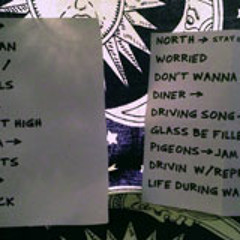 AN
/
LS
T HIGH
A →
TS
→
CK
NORTH → STAT
WORRIED
DON'T WANNA
DINER →
DRIVING SONG →
GLASS BE FILLE
PIGEONS → JAM
DRIVIN W/REPR
LIFE DURING WA